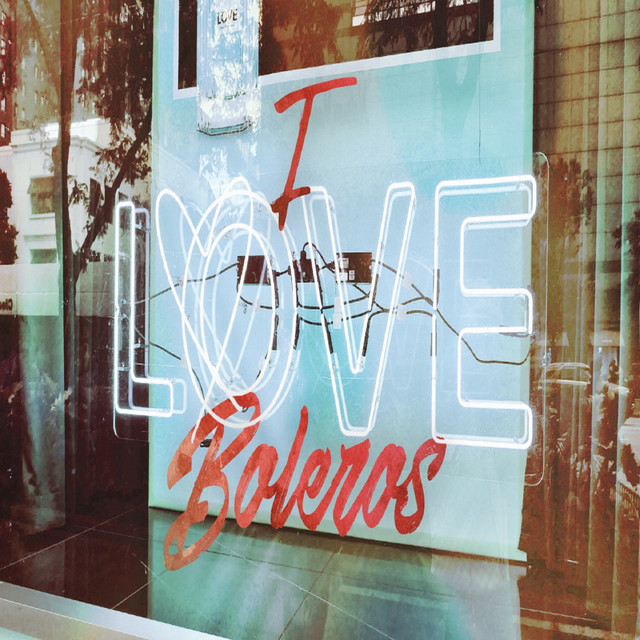 LOVE
I
LOVE
Boleros